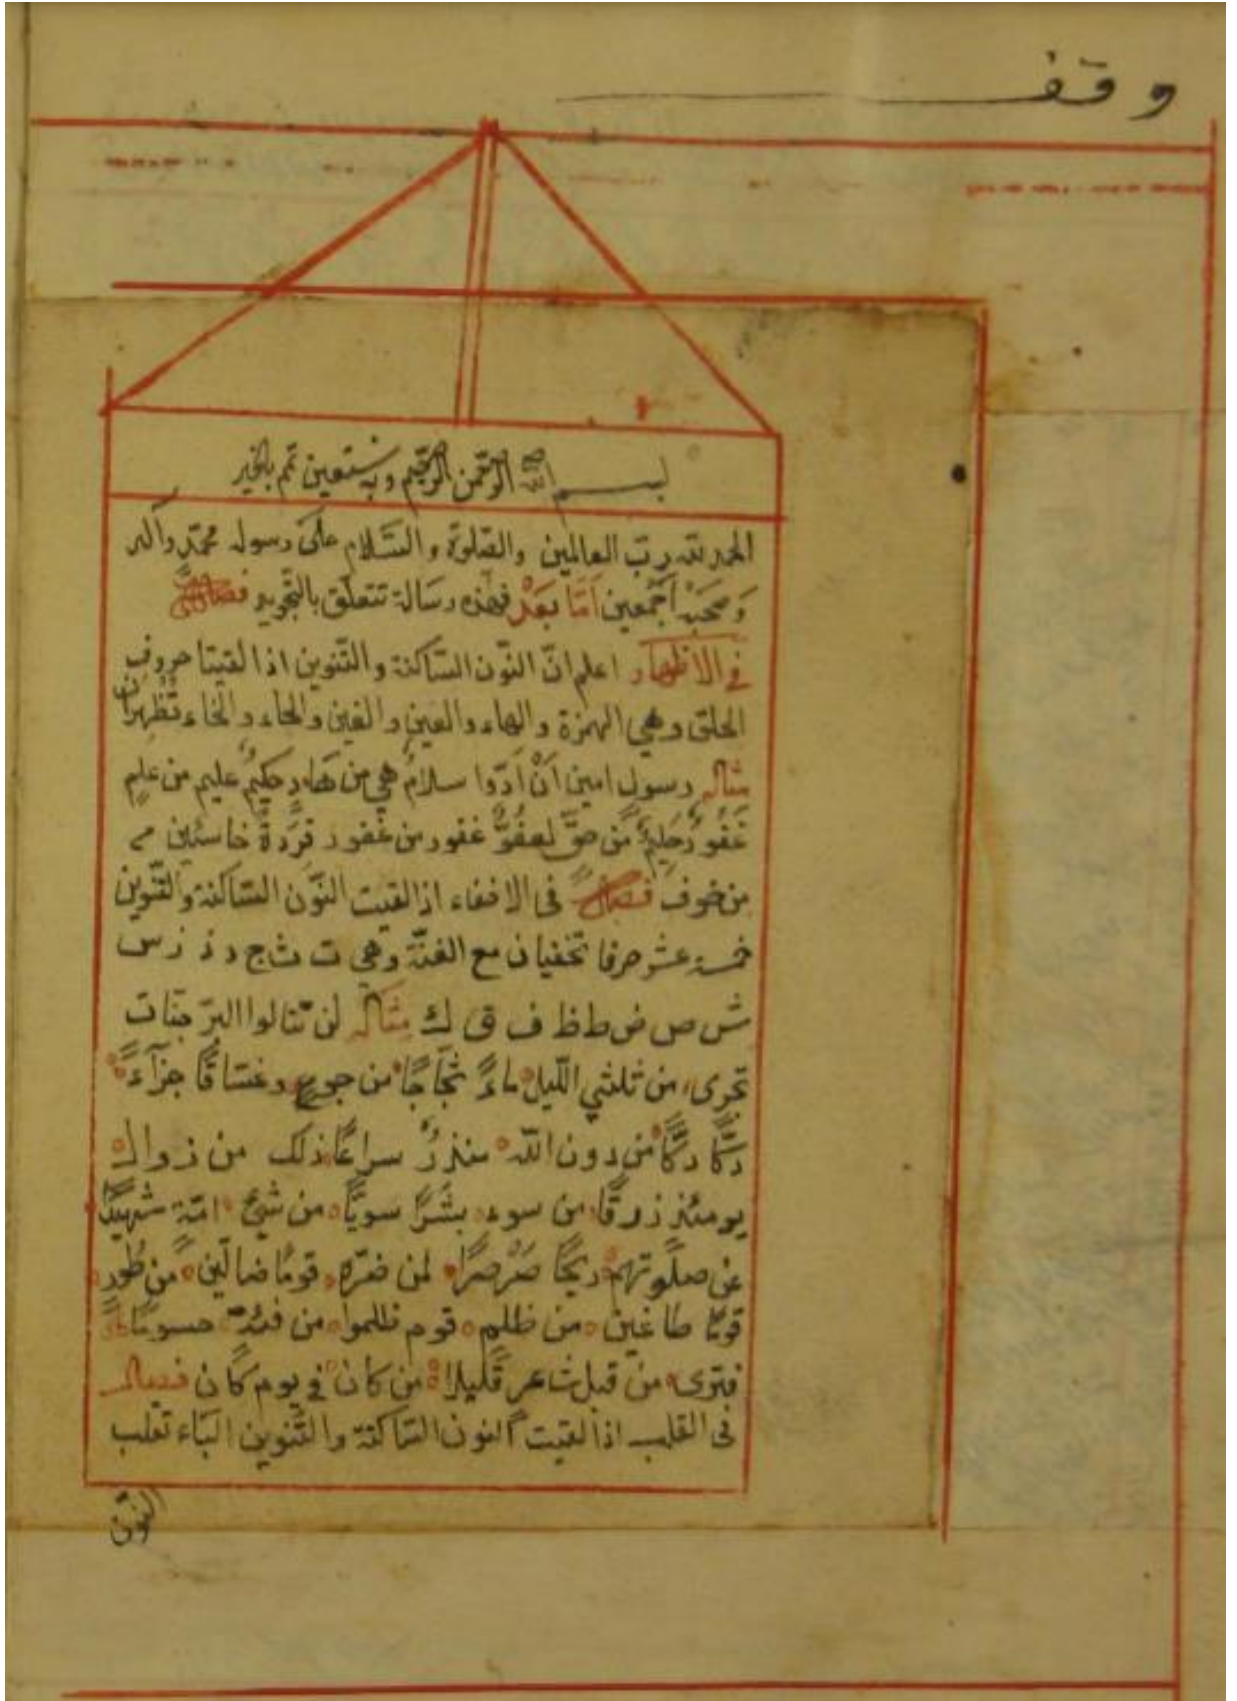 وقف
بسم الله الرحمن الرحيم وبه نستعين تمم بالخير
الحمد لله رب العالمين والصلوة والسَّلام على رسوله محمّدٍ وآله
وَصحبه اَجْمعين اَمَّا بَعْدُ فهذه رسَالة تتعلّق بالتّجويد فصل
في الاظهار اعلم انّ النّون السّاكنة والتّنوين اذا لقيتا حروف
الحلق وهي الهمزة والهاء والعين والغين والحاء والخاء تُظْهران
مثاله رسول امين اَنْ اَدّوا سلامٌ هي من هاد حكيمٌ عليم من علمٍ
غَفُورٌ حَليمٌ من حقّ لعفُوٌّ غفور من غفور قِرَدةً خاسئين
من خوف فصل فى الاخفاء اذا لقيت النّون السّاكنة والتّنوين
خمسة عشر حرفا تخفيان مع الغنّة وهي ت ث ج د ذ ز س
ش ص ض ط ظ ف ق ك مثاله لن تنالوا البرّ جنّات
تجرى من ثلثي اللّيل ماءً ثجّاجًا من جوعٍ وغسّاقًا جزآءً
دَكًّا دَكًّا من دون اللّه منذرٌ سراعًا ذلك من زوال
يومئذٍ زرقًا من سوء بشَرًا سويًّا من شئ امّةٍ شهيدًا
عن صلوتهم ريحًا صَرْصرًا لمن ضرّه قومًا ضالّين من طُورِ
قومًا طاغين من ظلم قوم ظلموا من فئة حسومًا
فترى من قبل شاعر قليلا من كان في يوم كان فصل
فى القلب اذا لقيت النون السّاكنة والتّنوين البَاء تقلب
النّون